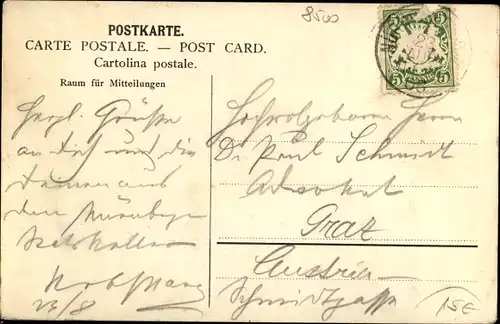 8500
POSTKARTE.
CARTE POSTALE. — POST CARD.
Cartolina postale.
Raum für Mitteilungen
5 5
5 PFENNIG 5
Herzl. Grüße
an Dich und die
Deinen aus
dem Nürnberger
Ratskeller
23/8
Hochwolgeboren Herrn
Dr Paul Schmidt
Advokat
Graz
Austria
Schmidtgasse
15E